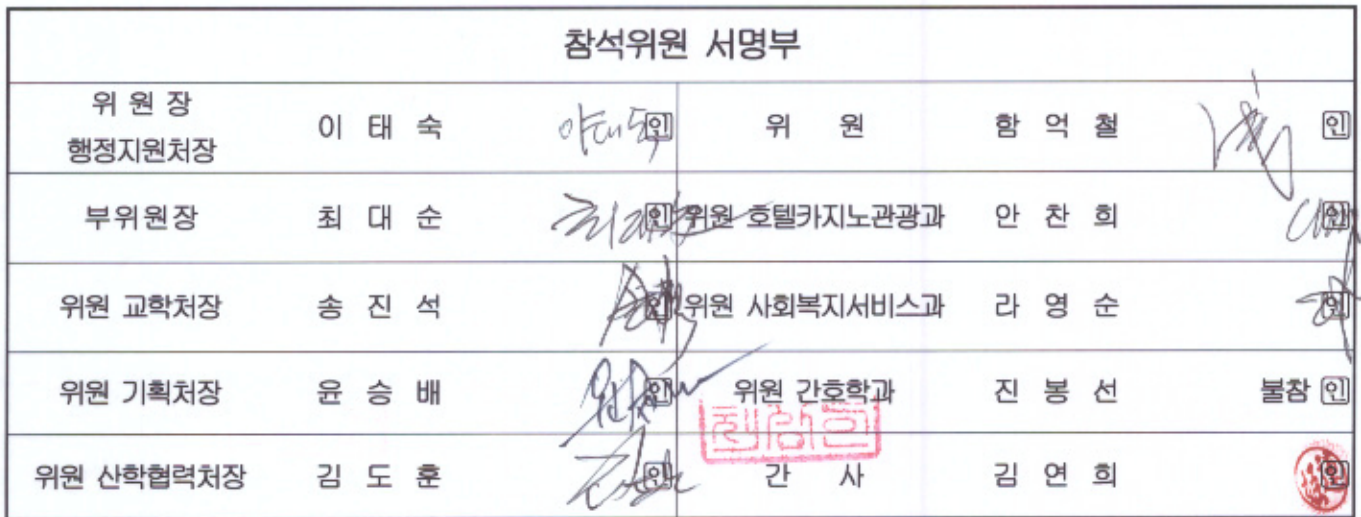 참석위원 서명부
위 원 장
행정지원처장 이 태 숙 인 위 원 함 억 철 인
부위원장 최 대 순 인 위원 호텔카지노관광과 안 찬 희 인
위원 교학처장 송 진 석 인 위원 사회복지서비스과 라 영 순 인
위원 기획처장 윤 승 배 인 위원 간호학과 진 봉 선 불참 인
위원 산학협력처장 김 도 훈 인 간 사 김 연 희 인